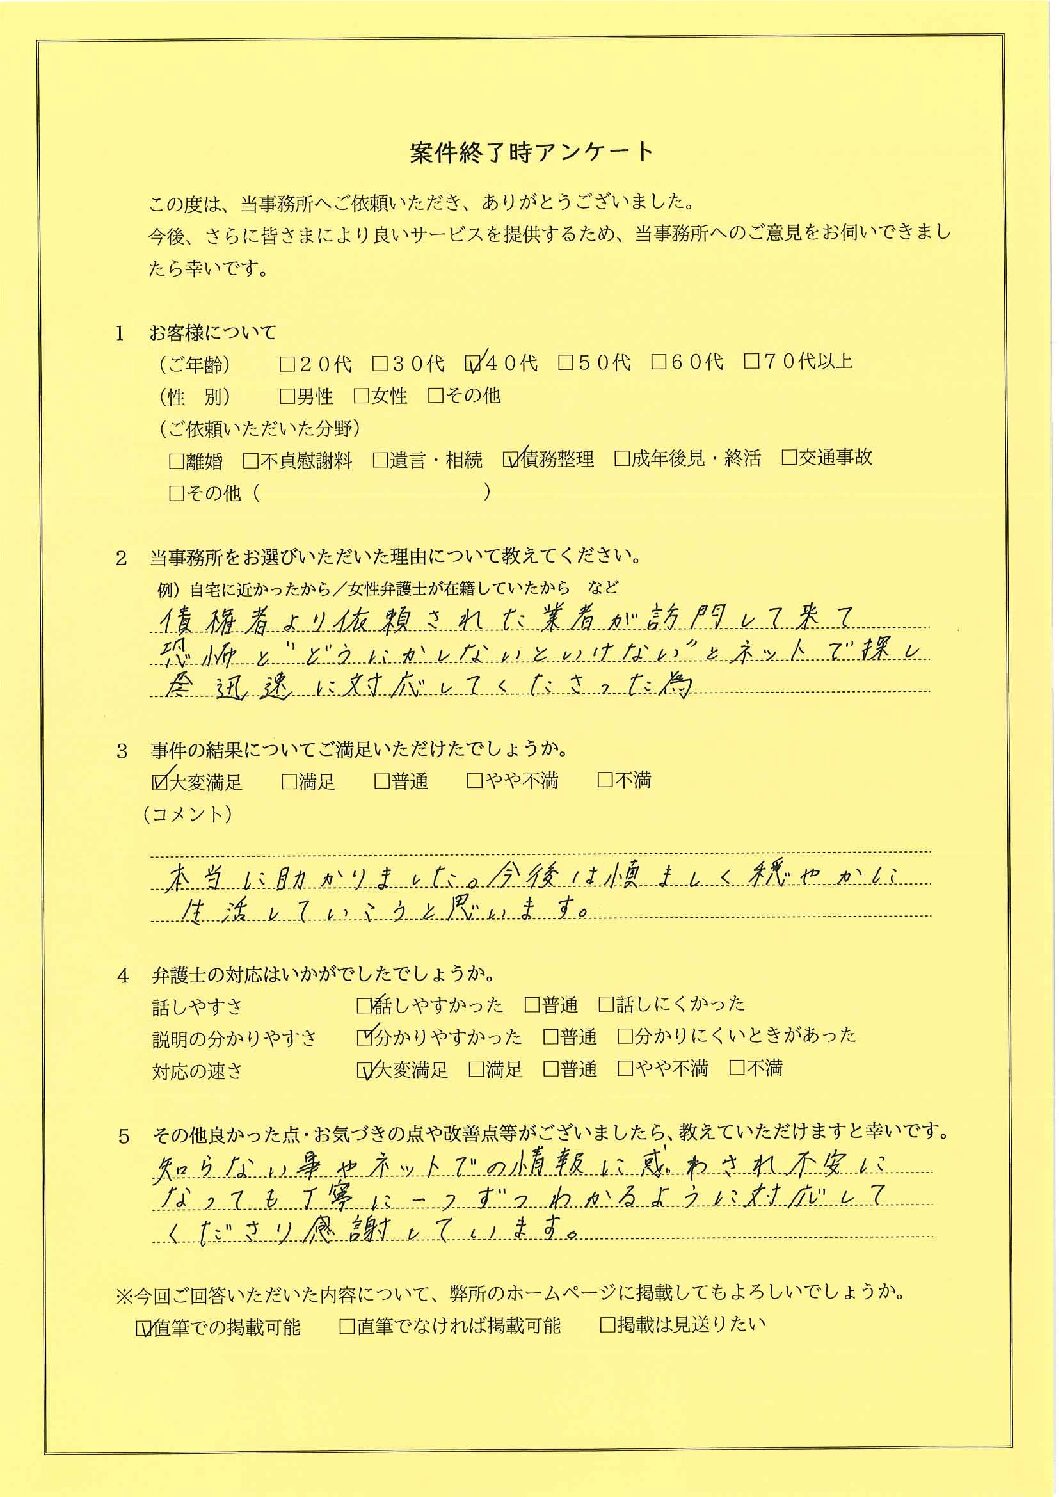 案件終了時アンケート
この度は、当事務所へご依頼いただき、ありがとうございました。
今後、さらに皆さまにより良いサービスを提供するため、当事務所へのご意見をお伺いできまし
たら幸いです。
1 お客様について
（ご年齢） □２０代 □３０代 ☑４０代 □５０代 □６０代 □７０代以上
（性　別） □男性 □女性 □その他
（ご依頼いただいた分野）
□離婚 □不貞慰謝料 □遺言・相続 ☑債務整理 □成年後見・終活 □交通事故
□その他（　　　　　　　　　　　　）
2 当事務所をお選びいただいた理由について教えてください。
例）自宅に近かったから／女性弁護士が在籍していたから　など
債権者より依頼された業者が訪問して来て
恐怖と"どうにかしないといけない"とネットで探し
迅速に対応してくださった為
3 事件の結果についてご満足いただけたでしょうか。
☑大変満足 □満足 □普通 □やや不満 □不満
（コメント）
本当に助かりました。今後は慎ましく穏やかに
生活していこうと思います。
4 弁護士の対応はいかがでしたでしょうか。
話しやすさ ☑話しやすかった □普通 □話しにくかった
説明の分かりやすさ ☑分かりやすかった □普通 □分かりにくいときがあった
対応の速さ ☑大変満足 □満足 □普通 □やや不満 □不満
5 その他良かった点・お気づきの点や改善点等がございましたら、教えていただけますと幸いです。
知らない事やネットでの情報に惑わされ不安に
なっても丁寧に一つずつわかるように対応して
くださり感謝しています。
※今回ご回答いただいた内容について、弊所のホームページに掲載してもよろしいでしょうか。
☑直筆での掲載可能 □直筆でなければ掲載可能 □掲載は見送りたい